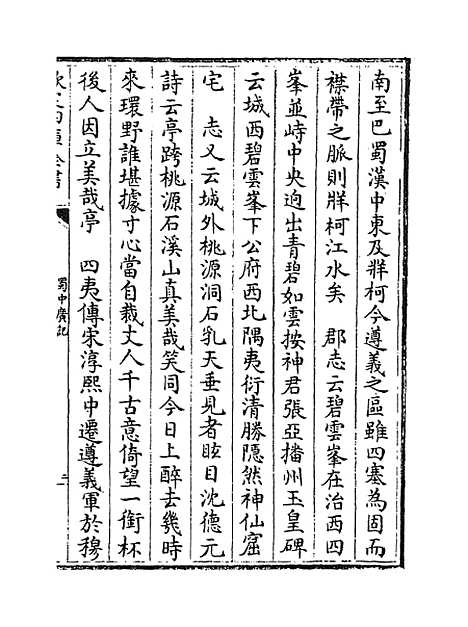 南至巴蜀漢中東及牂柯今遵義之區雖四塞為固而
襟帶之脈則牂柯江水矣　郡志云碧雲峯在治西四
峯並峙中央迥出青碧如雲按神君張亞播州玉皇碑
云城西碧雲峯下公府西北隅夷衍清勝隠然神仙窟
宅　志又云城外桃源洞石乳天垂見者眩目沈德元
詩云亭跨桃源石溪山真美哉笑同今日上醉去幾時
來環野誰堪據寸心當自裁丈人千古意倚望一銜杯
後人因立美哉亭　四夷傳宋淳熙中遷遵義軍於穆
蜀中廣記
二